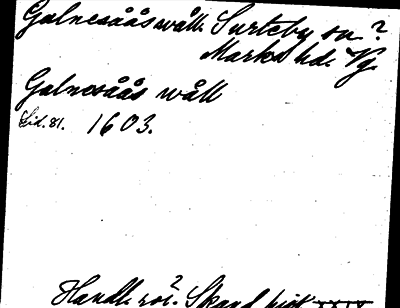 Galnesååswåll. Surteby sn?
Marks hd. Vg.
Galnesåås wåll
Lid. 81. 1603.
Handl. rör. ? Skand. hist. XXIX